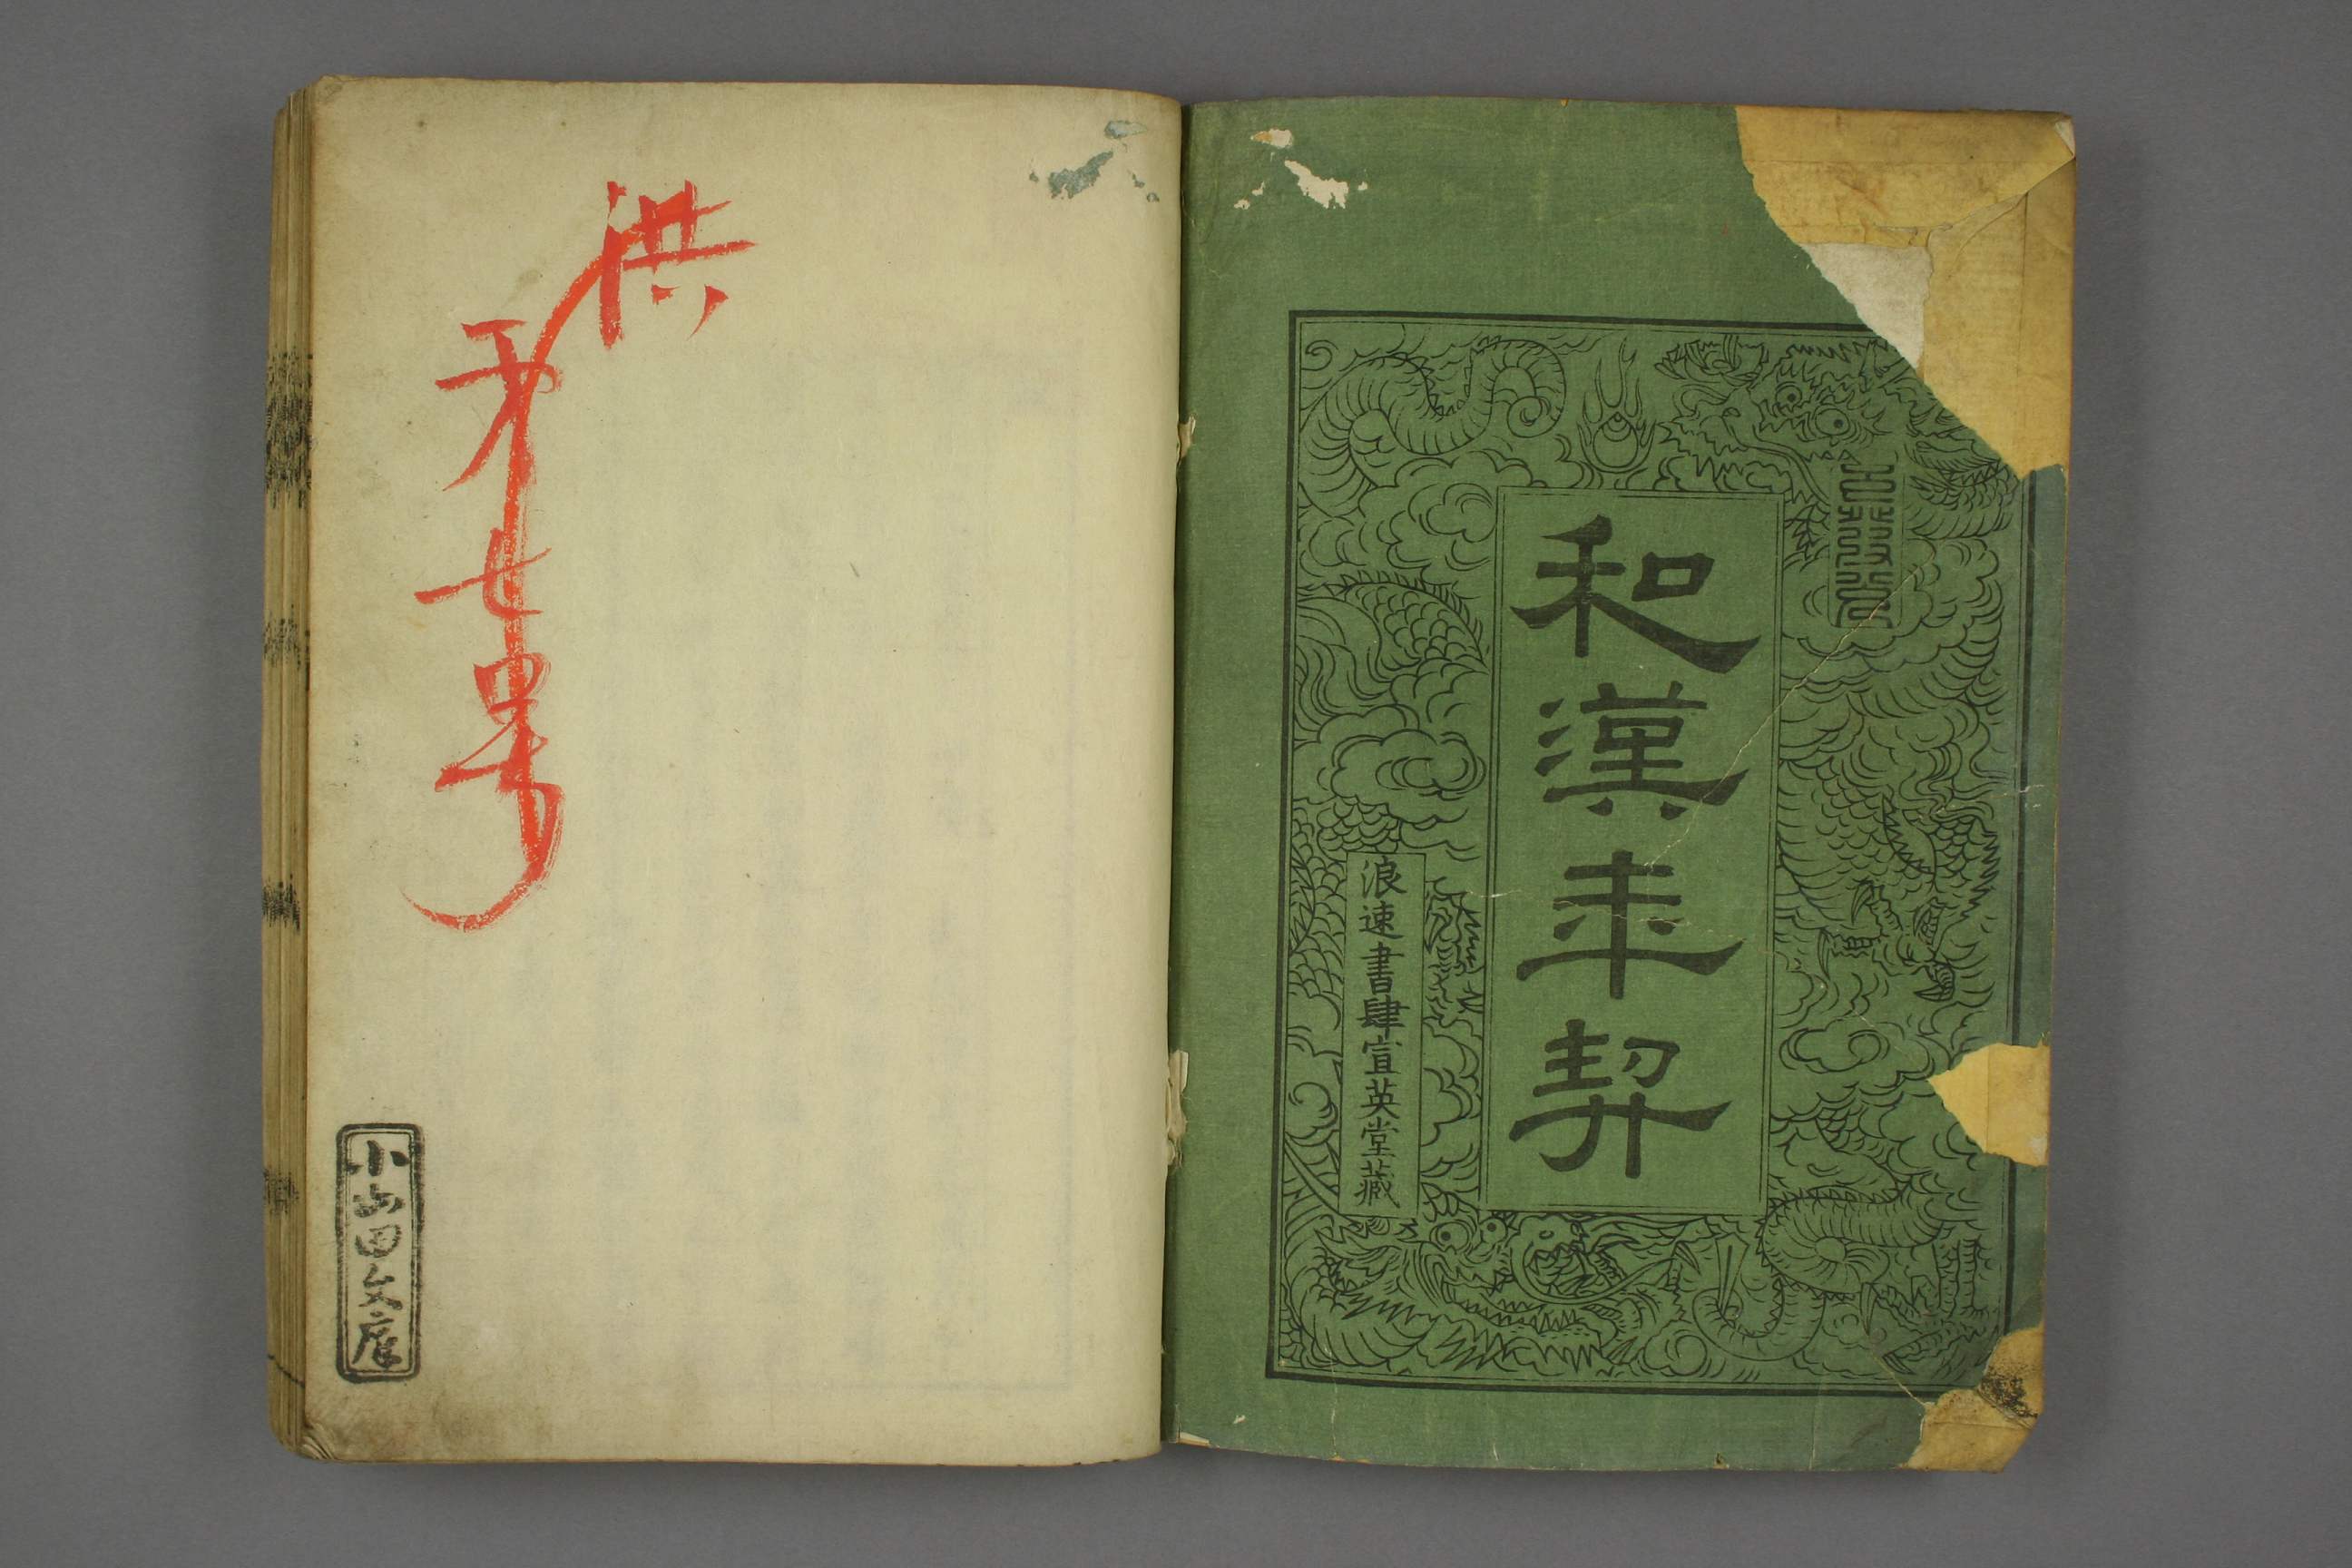 和漢年契
浪速書肆宣英堂藏
洪
第七号
小山田文庫